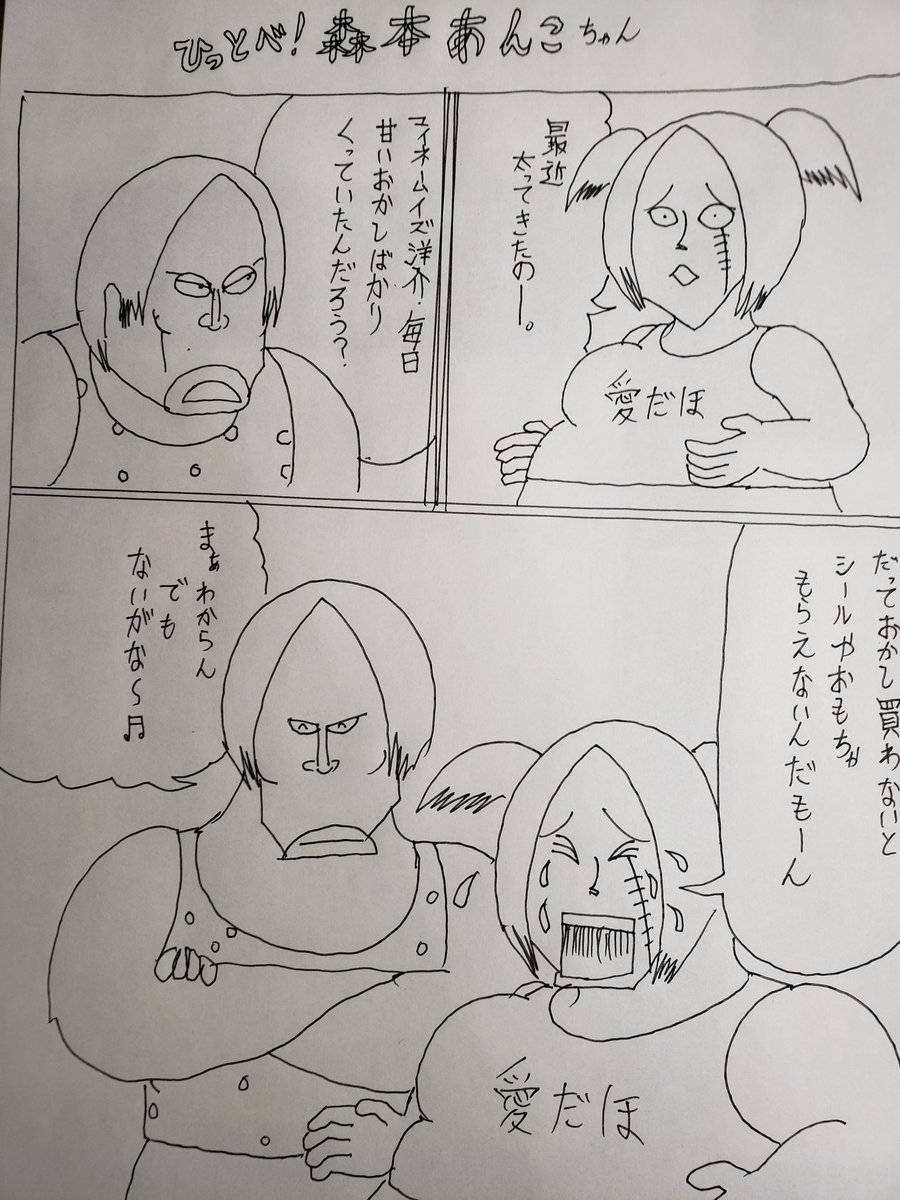 ひっとべ！森本あんこちゃん
最近
太ってきたのー。
愛だほ
マイネームイズ洋介・毎日
甘いおかしばかり
くっていたんだろう？
だっておかし買わないと
シールやおもちゃ
もらえないんだもーん
まぁわからん
でも
ないがな～♬
愛だほ